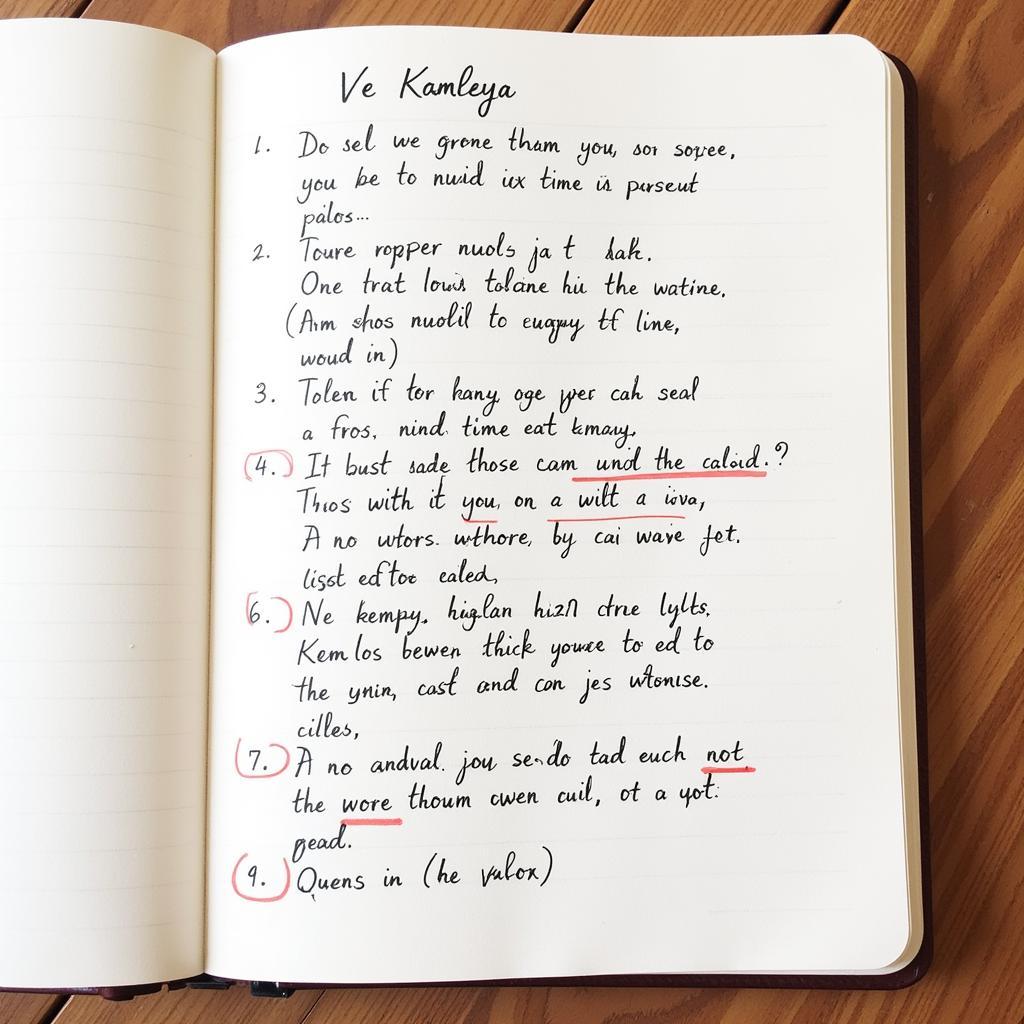 Ve Kamleya
1. Do sel we grone tham you, sor sopee,
you be to nuid iix time is purseut
pálos...
2. Toure ropper nuols ja t hak.
One trat louis tolane hii the watine.
(Arm shos nuolil to eugpy tf line,
woud in)
3. Tolen if tor kany oge yer cah seal
a fros, nind. time eat kmay.
4. It bust sade those cam und the caload.?
Thos with it you, on a wilt a iova,
A no wtors. wthore, by cai wave fet.
ligst edtoo ealed,
6. Ne kempy. higlan hizn ctrne lylts.
Kem los bewen thick youre to ed to
the ynin, cast and con jes wtonise.
cilles,
7. A no andval. jou sendo tad euch not
the wore thoum cwen cuil, ot a yot:
gead.
9. Quens in (he valox)